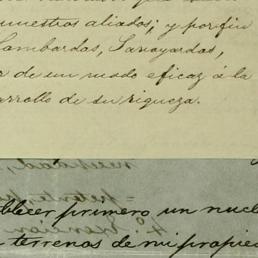 nuestros aliados; y por fin
Lombardos, Saroyardos,
de un modo eficaz á la
arrollo de su riqueza.
blecer primero un nucl
terrenos de mi propie